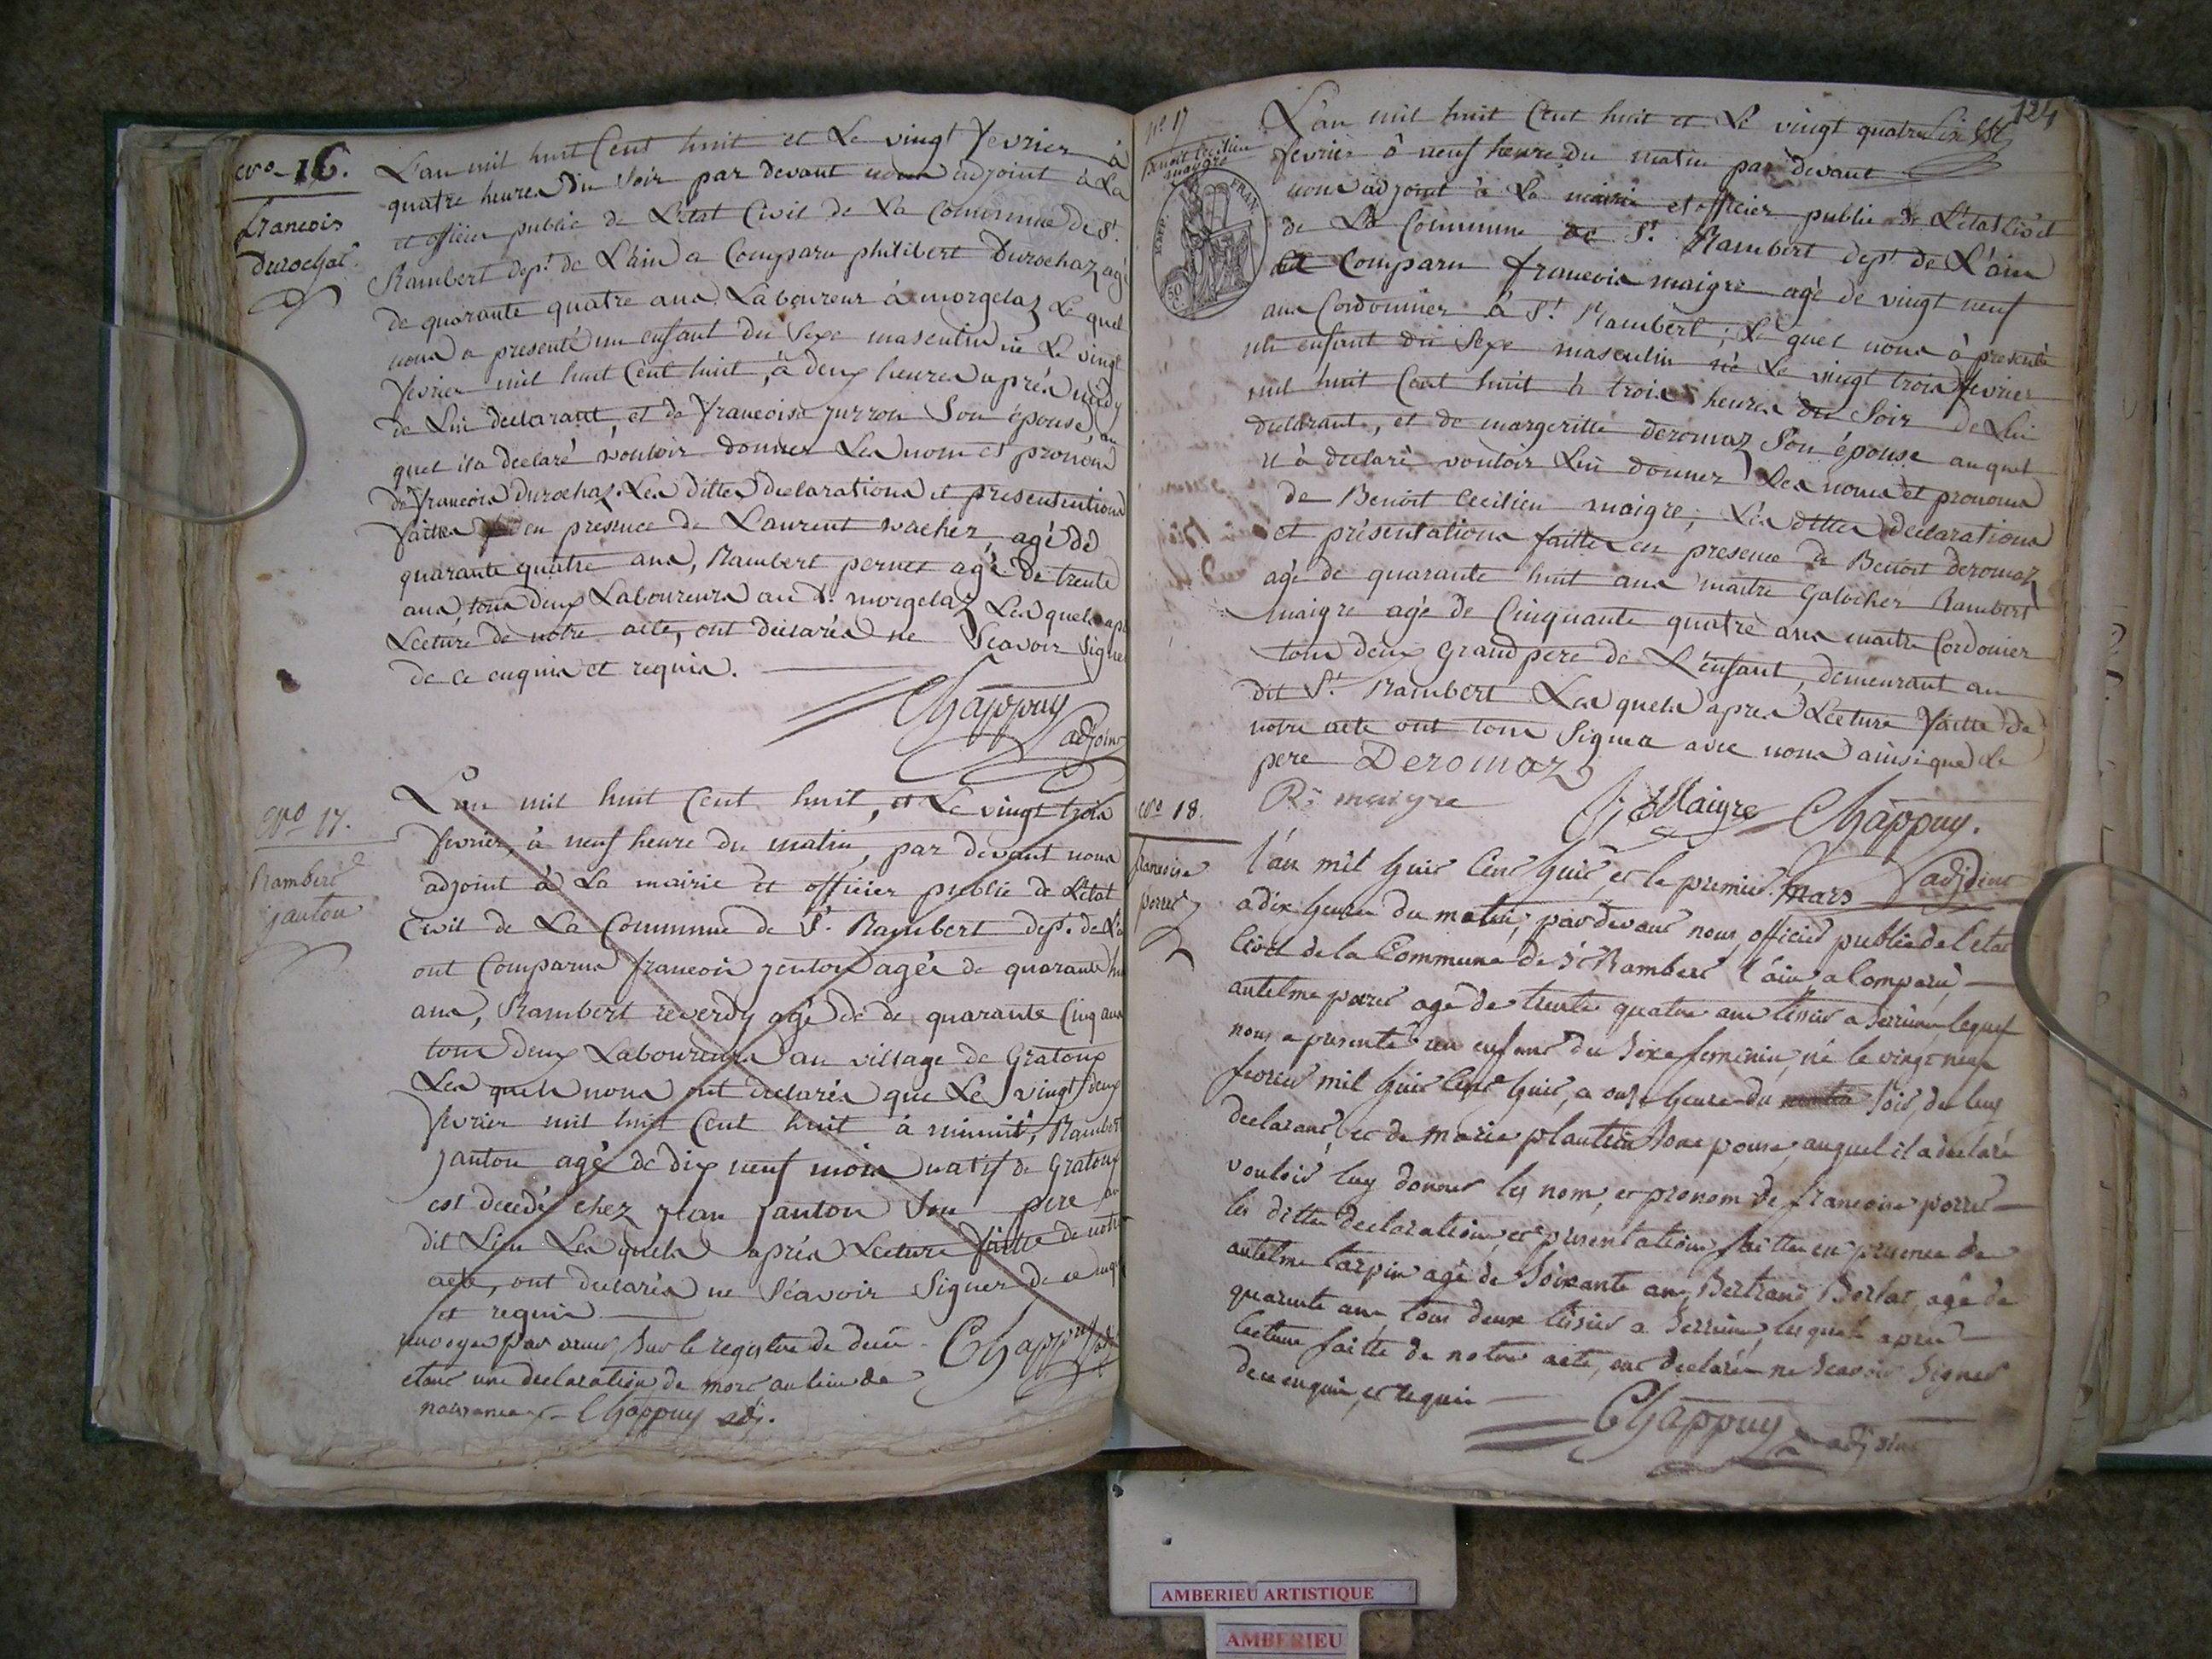 No 16.
francois
durochat
L'an mil huit Cent huit et Le vingt fevrier à
quatre heures du Soir par devant nous adjoint à La
et officier public de L'état Civil de La Commune de St.
Rambert dept. de L'ain a Comparu philibert Durochaz agé
de quarante quatre ans Laboureur à morgelaz Le quel
nous a presenté un enfant du Sexe masculin né Le vingt
fevrier mil huit Cent huit, à deux heures après midy
de Lui declarant, et de francoise jurron Son épouse, au
quel il a declaré vouloir donner Les nom et pronom
de francois durochaz. Les dittes declarations et presentations
faittes en presence de Laurent vacher, agé de
quarante quatre ans, Rambert pernet agé de trente
ans tous deux Laboureurs au d. morgelaz Les quels apr
Lecture de notre acte, ont déclarés ne Scavoir Signer
de ce enquis et requis.
Chappuy
adjoint
No 17.
Rambert
janton
L'an mil huit Cent huit, et Le vingt trois
fevrier, à neuf heure du matin, par devant nous
adjoint à La mairie et officier public de L'état
Civil de La Commune de St. Rambert dept. de L'a
ont Comparus francois jenton agée de quarante hu
ans, Rambert reverdy agé de de quarante Cinq ans
tous deux Laboureurs au village de Gratoux
Les quels nous ont declarés que Le vingt deux
fevrier mil huit Cent huit à minuit, Rambert
janton agé de dix neuf mois natif de Gratoux
est decedé chez jean janton Son pere au
dit Lieu Les quels après Lecture faitte de notre
acte, ont declarés ne Scavoir Signer de ce enq
et requis
renvoyé par erreur Sur le registre de
etant une declaration de mort au lieu de
naissance Chappuy adj.
Chappuy
124
no 17
Benoit Cecilien
maigre
EMP. FRAN.
L'an mil huit Cent huit et Le vingt quatre
fevrier à neuf heure du matin par devant
nous adjoint à La mairie et officier public de L'état Civil
de La Commune de St. Rambert dept. de L'ain
a Comparu francois maigre agé de vingt neuf
ans Cordonnier à St. Rambert; Le quel nous à presenté
un enfant du Sexe masculin né Le vingt trois fevrier
mil huit Cent huit à trois heures du Soir de Lui
declarant, et de margeritte deromaz Son épouse au quel
il à declaré vouloir Lui donner Les noms et pronoms
de Benoit Cecilien maigre; Les dittes declarations
et présentations faittes en presence de Benoit deromaz
agé de quarante huit ans maitre Galocher Rambert
maigre agé de Cinquante quatre ans maitre Cordonier
tous deux Grand pere de L'enfant, demeurant au
dit St. Rambert Les quels apres Lecture faitte de
notre acte ont tous Signer avec nous ainsi que Le
pere Deromaz
Rt maigre
f Maigre Chappuy.
adjoint
No 18.
francoise
porret
l'an mil huit Cent huit et le premier mars
a dix heures du matin, par devant nous, officier public de l'etat
Civil de la Commune de St Rambert l'ain a Comparu
antelme porret agé de trente quatre ans tissier a Serrieres lequel
nous a presenté un enfant du Sexe feminin, né le vingt neuf
fevrier mil huit Cent huit, a onze heure du soir, de luy
declarant, et de marie plantin Son epouse, auquel il a declaré
vouloir luy donner les nom, et pronom de francoise porret
les dittes declaration, et presentation faittes en presence de
antelme tarpin agé de Soixante ans, Bertrand Borlat, agé de
quarente ans, tous deux tissier a Serriere, lesquels apres
lecture faitte de notre acte, ont declarés ne Scavoir Signer
de ce enquis, et requis
Chappuy adjoint
AMBERIEU ARTISTIQUE
AMBERIEU